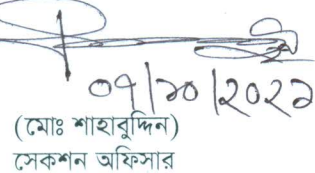 ০৭/১০/২০২১
(মোঃ শাহাবুদ্দিন)
সেকশন অফিসার